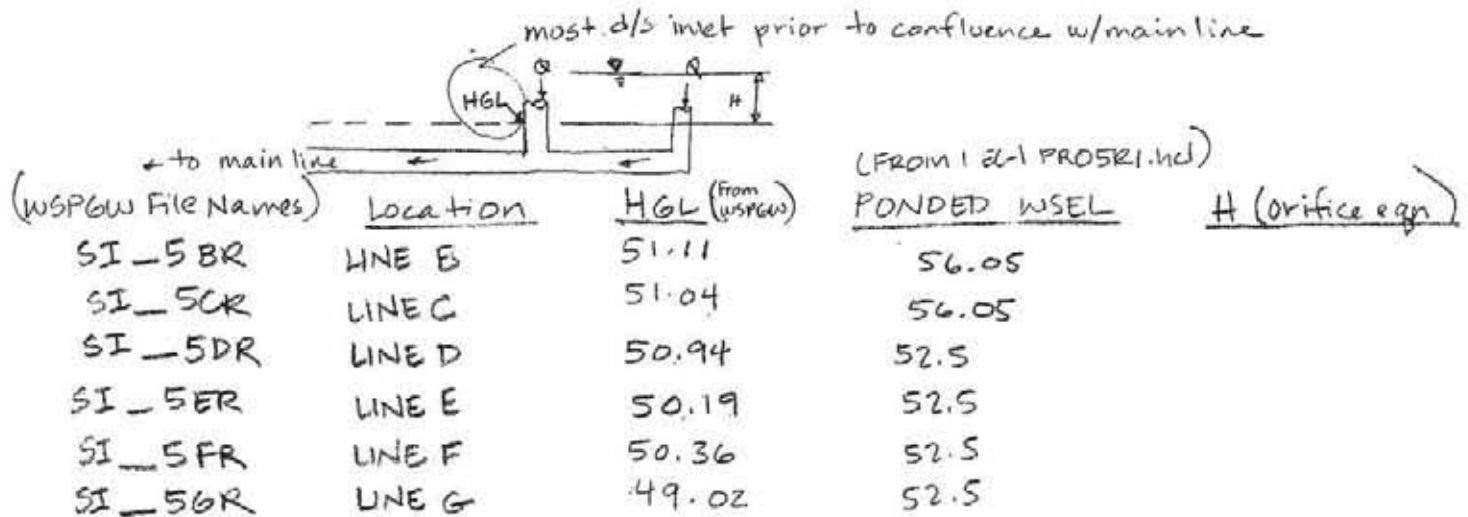 most d/s inlet prior to confluence w/main line
Q Q
HGL H
← to main line
(FROM PRO5R1.hcl)
(WSPGW File Names) Location HGL (From WSPGW) PONDED WSEL H (orifice eqn)
SI_5BR LINE B 51.11 56.05
SI_5CR LINE C 51.04 56.05
SI_5DR LINE D 50.94 52.5
SI_5ER LINE E 50.19 52.5
SI_5FR LINE F 50.36 52.5
SI_5GR LINE G 49.02 52.5